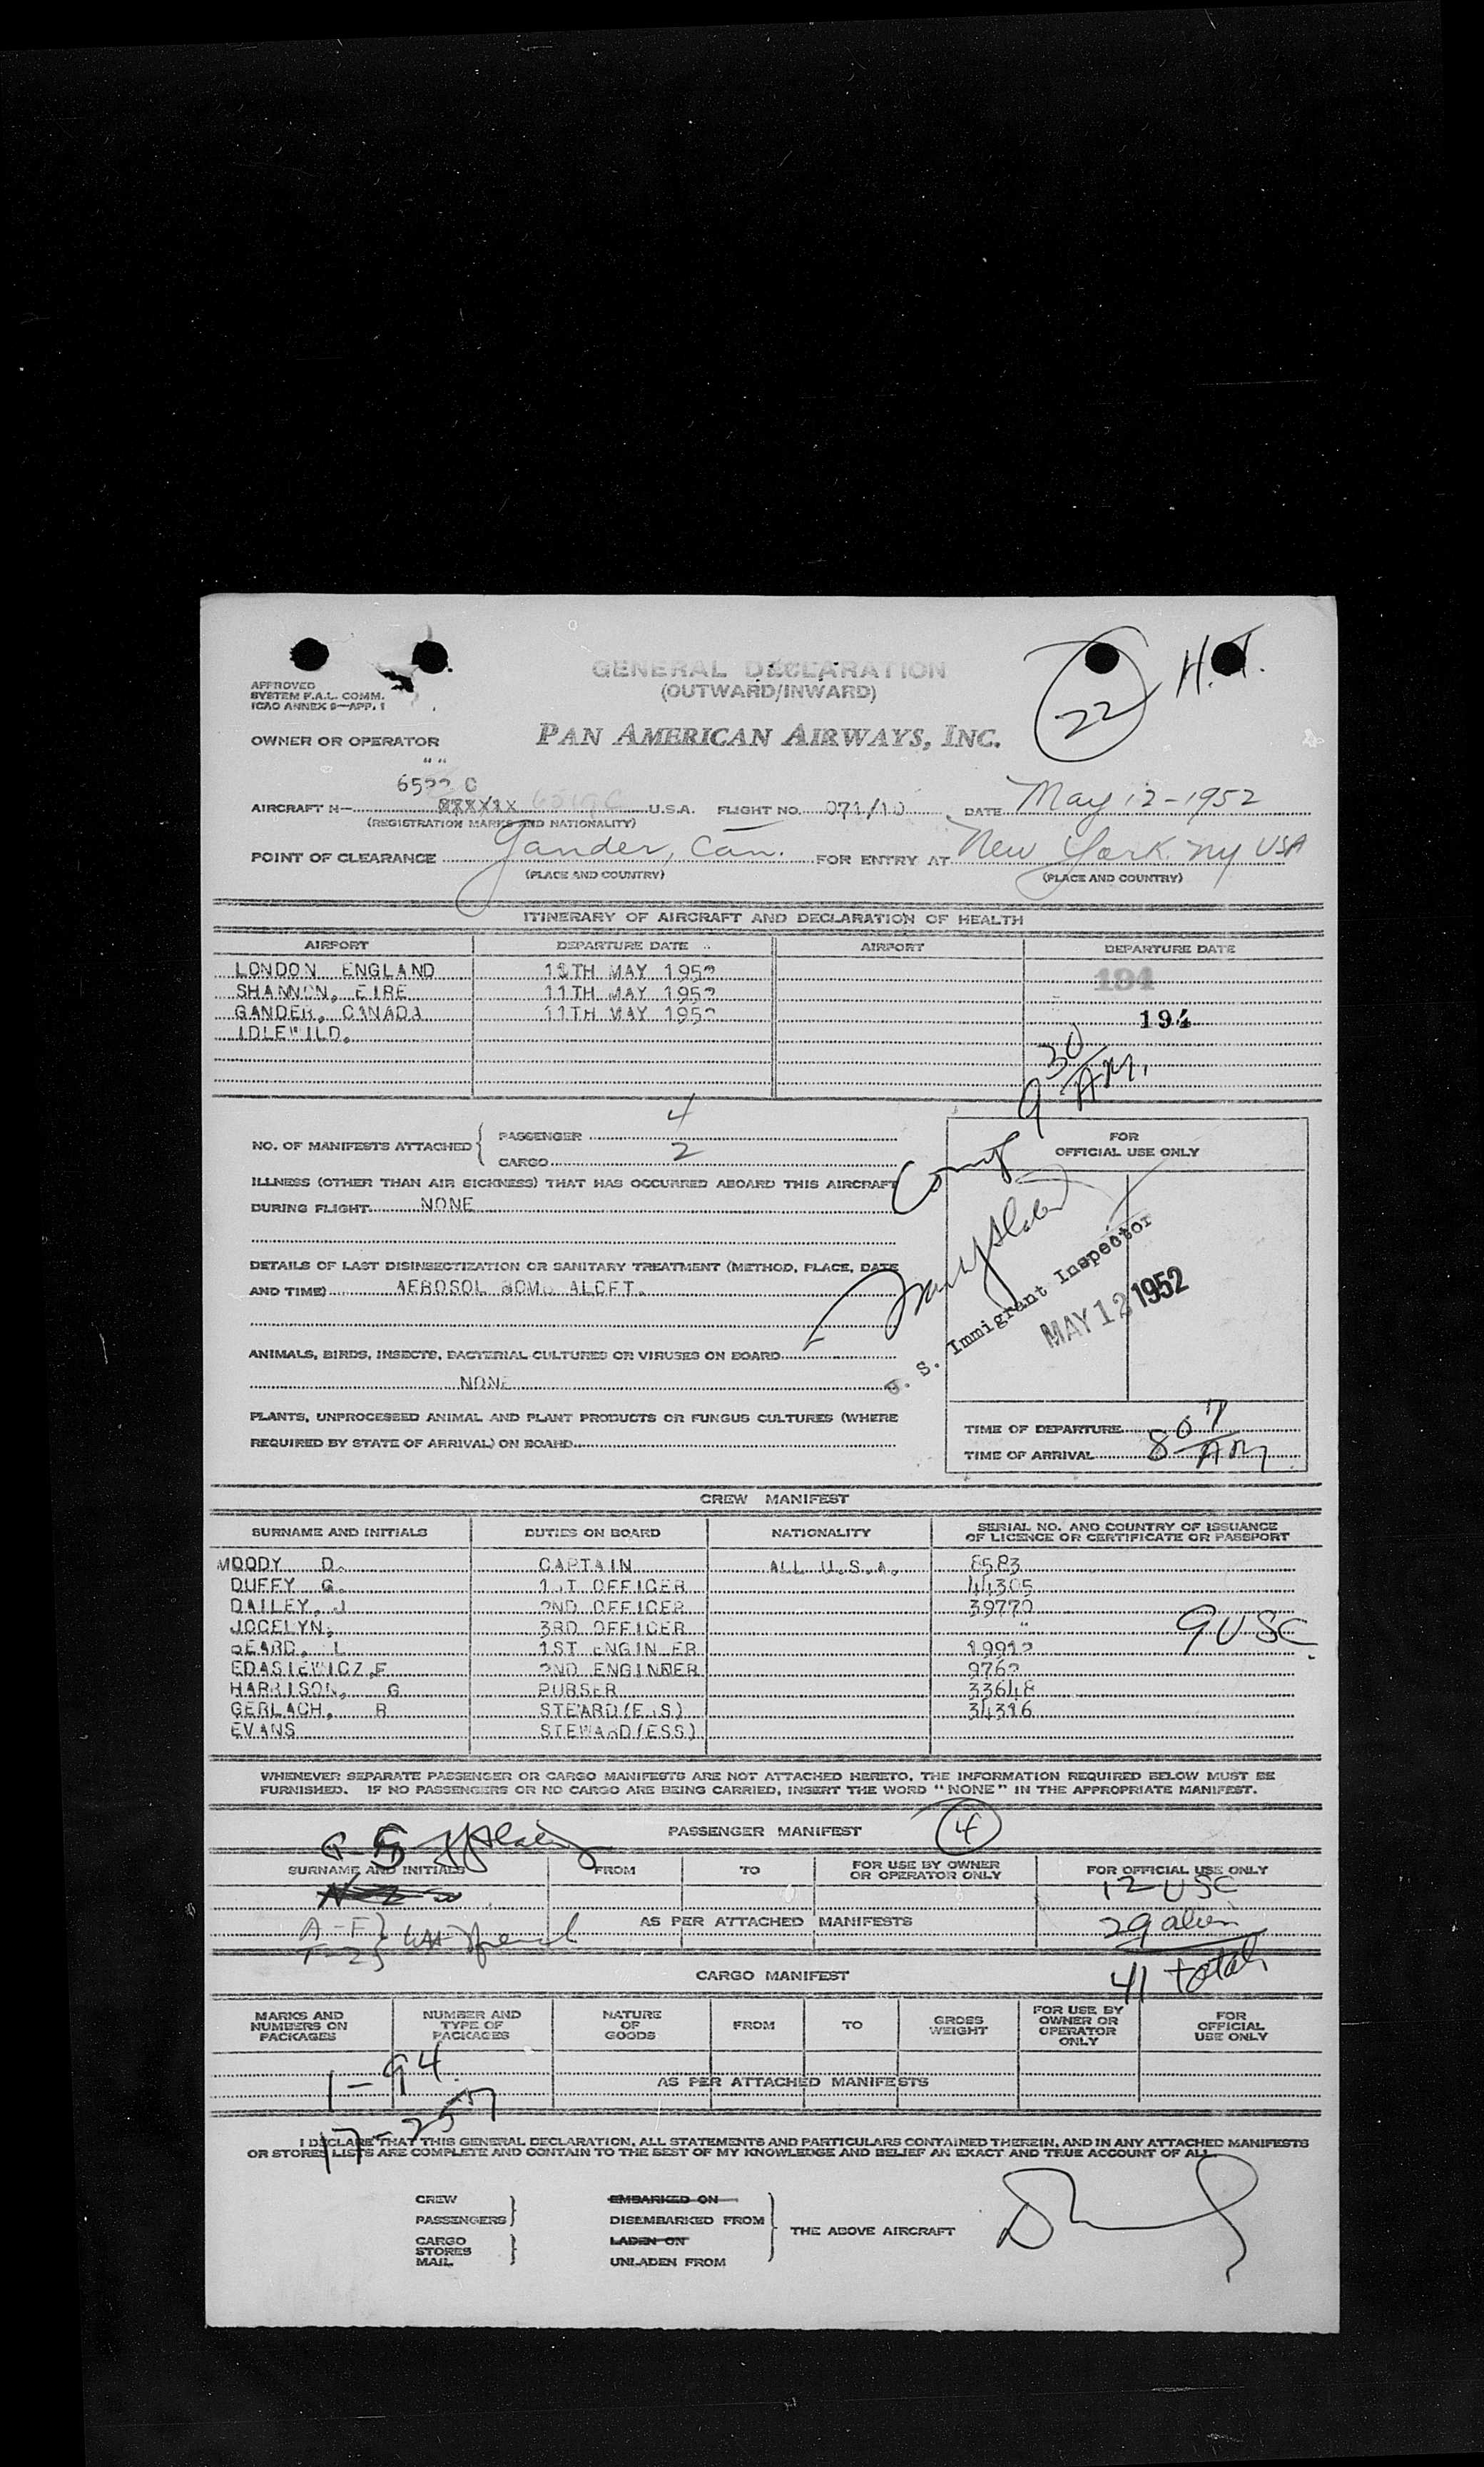 GENERAL DECLARATION
(OUTWARD/INWARD)
22
H.T.
APPROVED
SYSTEM F.A.L. COMM.
ICAO ANNEX 9—APP. 1
OWNER OR OPERATOR
PAN AMERICAN AIRWAYS, INC.
" "
AIRCRAFT N— U.S.A. FLIGHT NO. 071/10 DATE May 12-1952
(REGISTRATION MARKS AND NATIONALITY)
POINT OF CLEARANCE Gander, Can. FOR ENTRY AT New York. NY USA
(PLACE AND COUNTRY) (PLACE AND COUNTRY)
ITINERARY OF AIRCRAFT AND DECLARATION OF HEALTH
AIRPORT DEPARTURE DATE AIRPORT DEPARTURE DATE
LONDON ENGLAND 11TH MAY 1952
194
SHANNON, EIRE 11TH MAY 1952
GANDER, CANADA 11TH MAY 1952
194
IDLEWILD.
9 30 AM.
NO. OF MANIFESTS ATTACHED { PASSENGER 4
CARGO 2
FOR
OFFICIAL USE ONLY
ILLNESS (OTHER THAN AIR SICKNESS) THAT HAS OCCURRED ABOARD THIS AIRCRAFT
DURING FLIGHT NONE
DETAILS OF LAST DISINSECTIZATION OR SANITARY TREATMENT (METHOD, PLACE, DATE
AND TIME) AEROSOL BOMB ALOFT.
U. S. Immigrant Inspector
MAY 12 1952
ANIMALS, BIRDS, INSECTS, BACTERIAL CULTURES OR VIRUSES ON BOARD
NONE
PLANTS, UNPROCESSED ANIMAL AND PLANT PRODUCTS OR FUNGUS CULTURES (WHERE
REQUIRED BY STATE OF ARRIVAL) ON BOARD
TIME OF DEPARTURE
TIME OF ARRIVAL 8 07 AM
CREW MANIFEST
SURNAME AND INITIALS DUTIES ON BOARD NATIONALITY SERIAL NO. AND COUNTRY OF ISSUANCE
OF LICENCE OR CERTIFICATE OR PASSPORT
MOODY D. CAPTAIN ALL U.S.A. 8583
DUFFY G. 1ST OFFICER 44305
DAILEY, J 2ND OFFICER 39770
JOCELYN, 3RD OFFICER "
BEARD, L 1ST ENGINEER 19912
9 USC
EDASIEWICZ, F 2ND ENGINEER 9762
HARRISON, G PURSER 33648
GERLACH, R STEWARD(ESS) 34316
EVANS STEWARD(ESS)
WHENEVER SEPARATE PASSENGER OR CARGO MANIFESTS ARE NOT ATTACHED HERETO, THE INFORMATION REQUIRED BELOW MUST BE
FURNISHED. IF NO PASSENGERS OR NO CARGO ARE BEING CARRIED, INSERT THE WORD "NONE" IN THE APPROPRIATE MANIFEST.
PASSENGER MANIFEST 4
SURNAME AND INITIALS FROM TO FOR USE BY OWNER
OR OPERATOR ONLY FOR OFFICIAL USE ONLY
12 USC
AS PER ATTACHED MANIFESTS 29 alien
41 total
CARGO MANIFEST
MARKS AND
NUMBERS ON
PACKAGES NUMBER AND
TYPE OF
PACKAGES NATURE
OF
GOODS FROM TO GROSS
WEIGHT FOR USE BY
OWNER OR
OPERATOR
ONLY FOR
OFFICIAL
USE ONLY
1-94
AS PER ATTACHED MANIFESTS
17-257
I DECLARE THAT THIS GENERAL DECLARATION, ALL STATEMENTS AND PARTICULARS CONTAINED THEREIN, AND IN ANY ATTACHED MANIFESTS
OR STORES LISTS ARE COMPLETE AND CONTAIN TO THE BEST OF MY KNOWLEDGE AND BELIEF AN EXACT AND TRUE ACCOUNT OF ALL
CREW
PASSENGERS
CARGO
STORES
MAIL
EMBARKED ON
DISEMBARKED FROM
LADEN ON
UNLADEN FROM
THE ABOVE AIRCRAFT